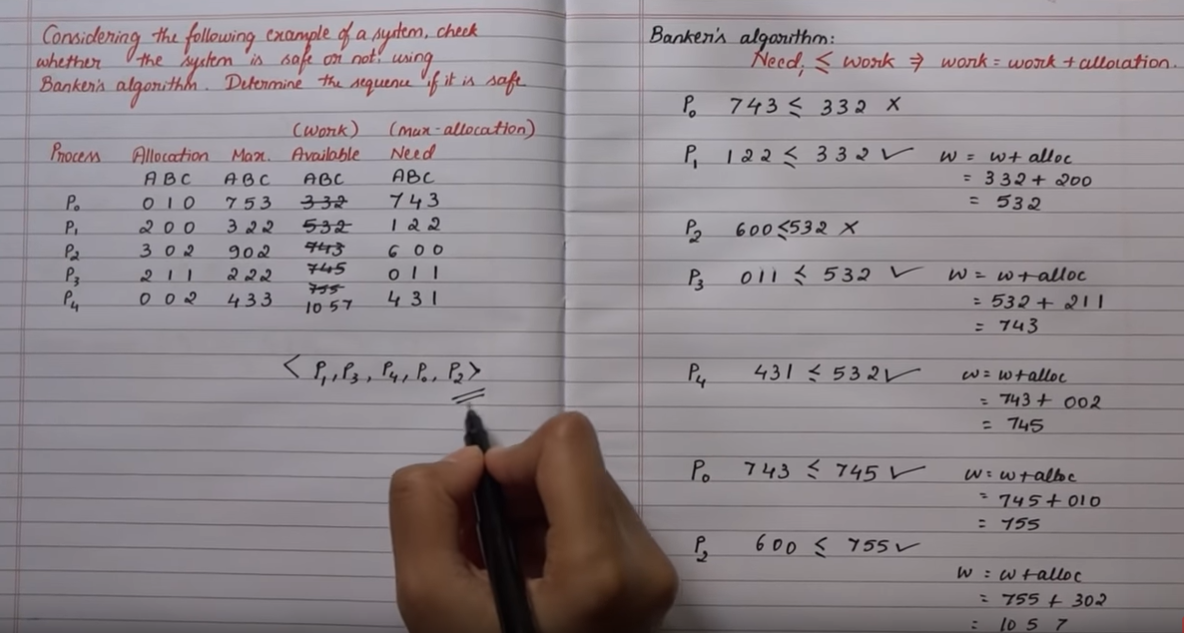 Considering the following example of a system, check
whether the system is safe or not, using
Banker's algorithm. Determine the sequence if it is safe
(Work) (max-allocation)
Process Allocation Max. Available Need
A B C A B C A B C A B C
P₀ 0 1 0 7 5 3 3 3 2 7 4 3
P₁ 2 0 0 3 2 2 5 3 2 1 2 2
P₂ 3 0 2 9 0 2 7 4 3 6 0 0
P₃ 2 1 1 2 2 2 7 4 5 0 1 1
7 5 5
P₄ 0 0 2 4 3 3 10 5 7 4 3 1
< P₁, P₃, P₄, P₀, P₂ >
Banker's algorithm:
Needᵢ ≤ work ⇒ work = work + allocation.
P₀ 743 ≤ 332 ×
P₁ 122 ≤ 332 ✓ w = w + alloc
= 332 + 200
= 532
P₂ 600 ≤ 532 ×
P₃ 011 ≤ 532 ✓ w = w + alloc
= 532 + 211
= 743
P₄ 431 ≤ 532 ✓ w = w + alloc
= 743 + 002
= 745
P₀ 743 ≤ 745 ✓ w = w + alloc
= 745 + 010
= 755
P₂ 600 ≤ 755 ✓
w = w + alloc
= 755 + 302
= 10 5 7